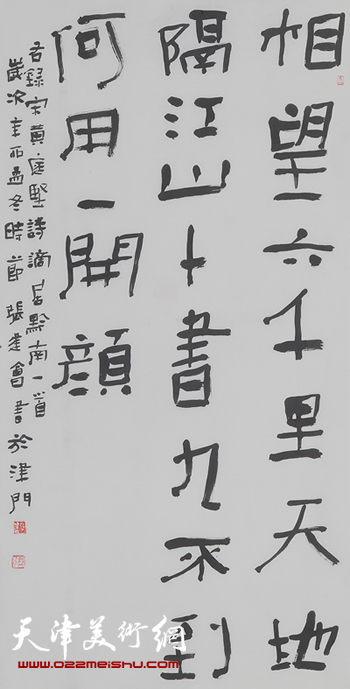 相望六千里天地
隔江山十書九不到
何用一開顔
右録宋黄庭堅詩謫居黔南一首
歲次辛丑孟冬時節張建會書於津門
天津美術網
www.022meishu.com